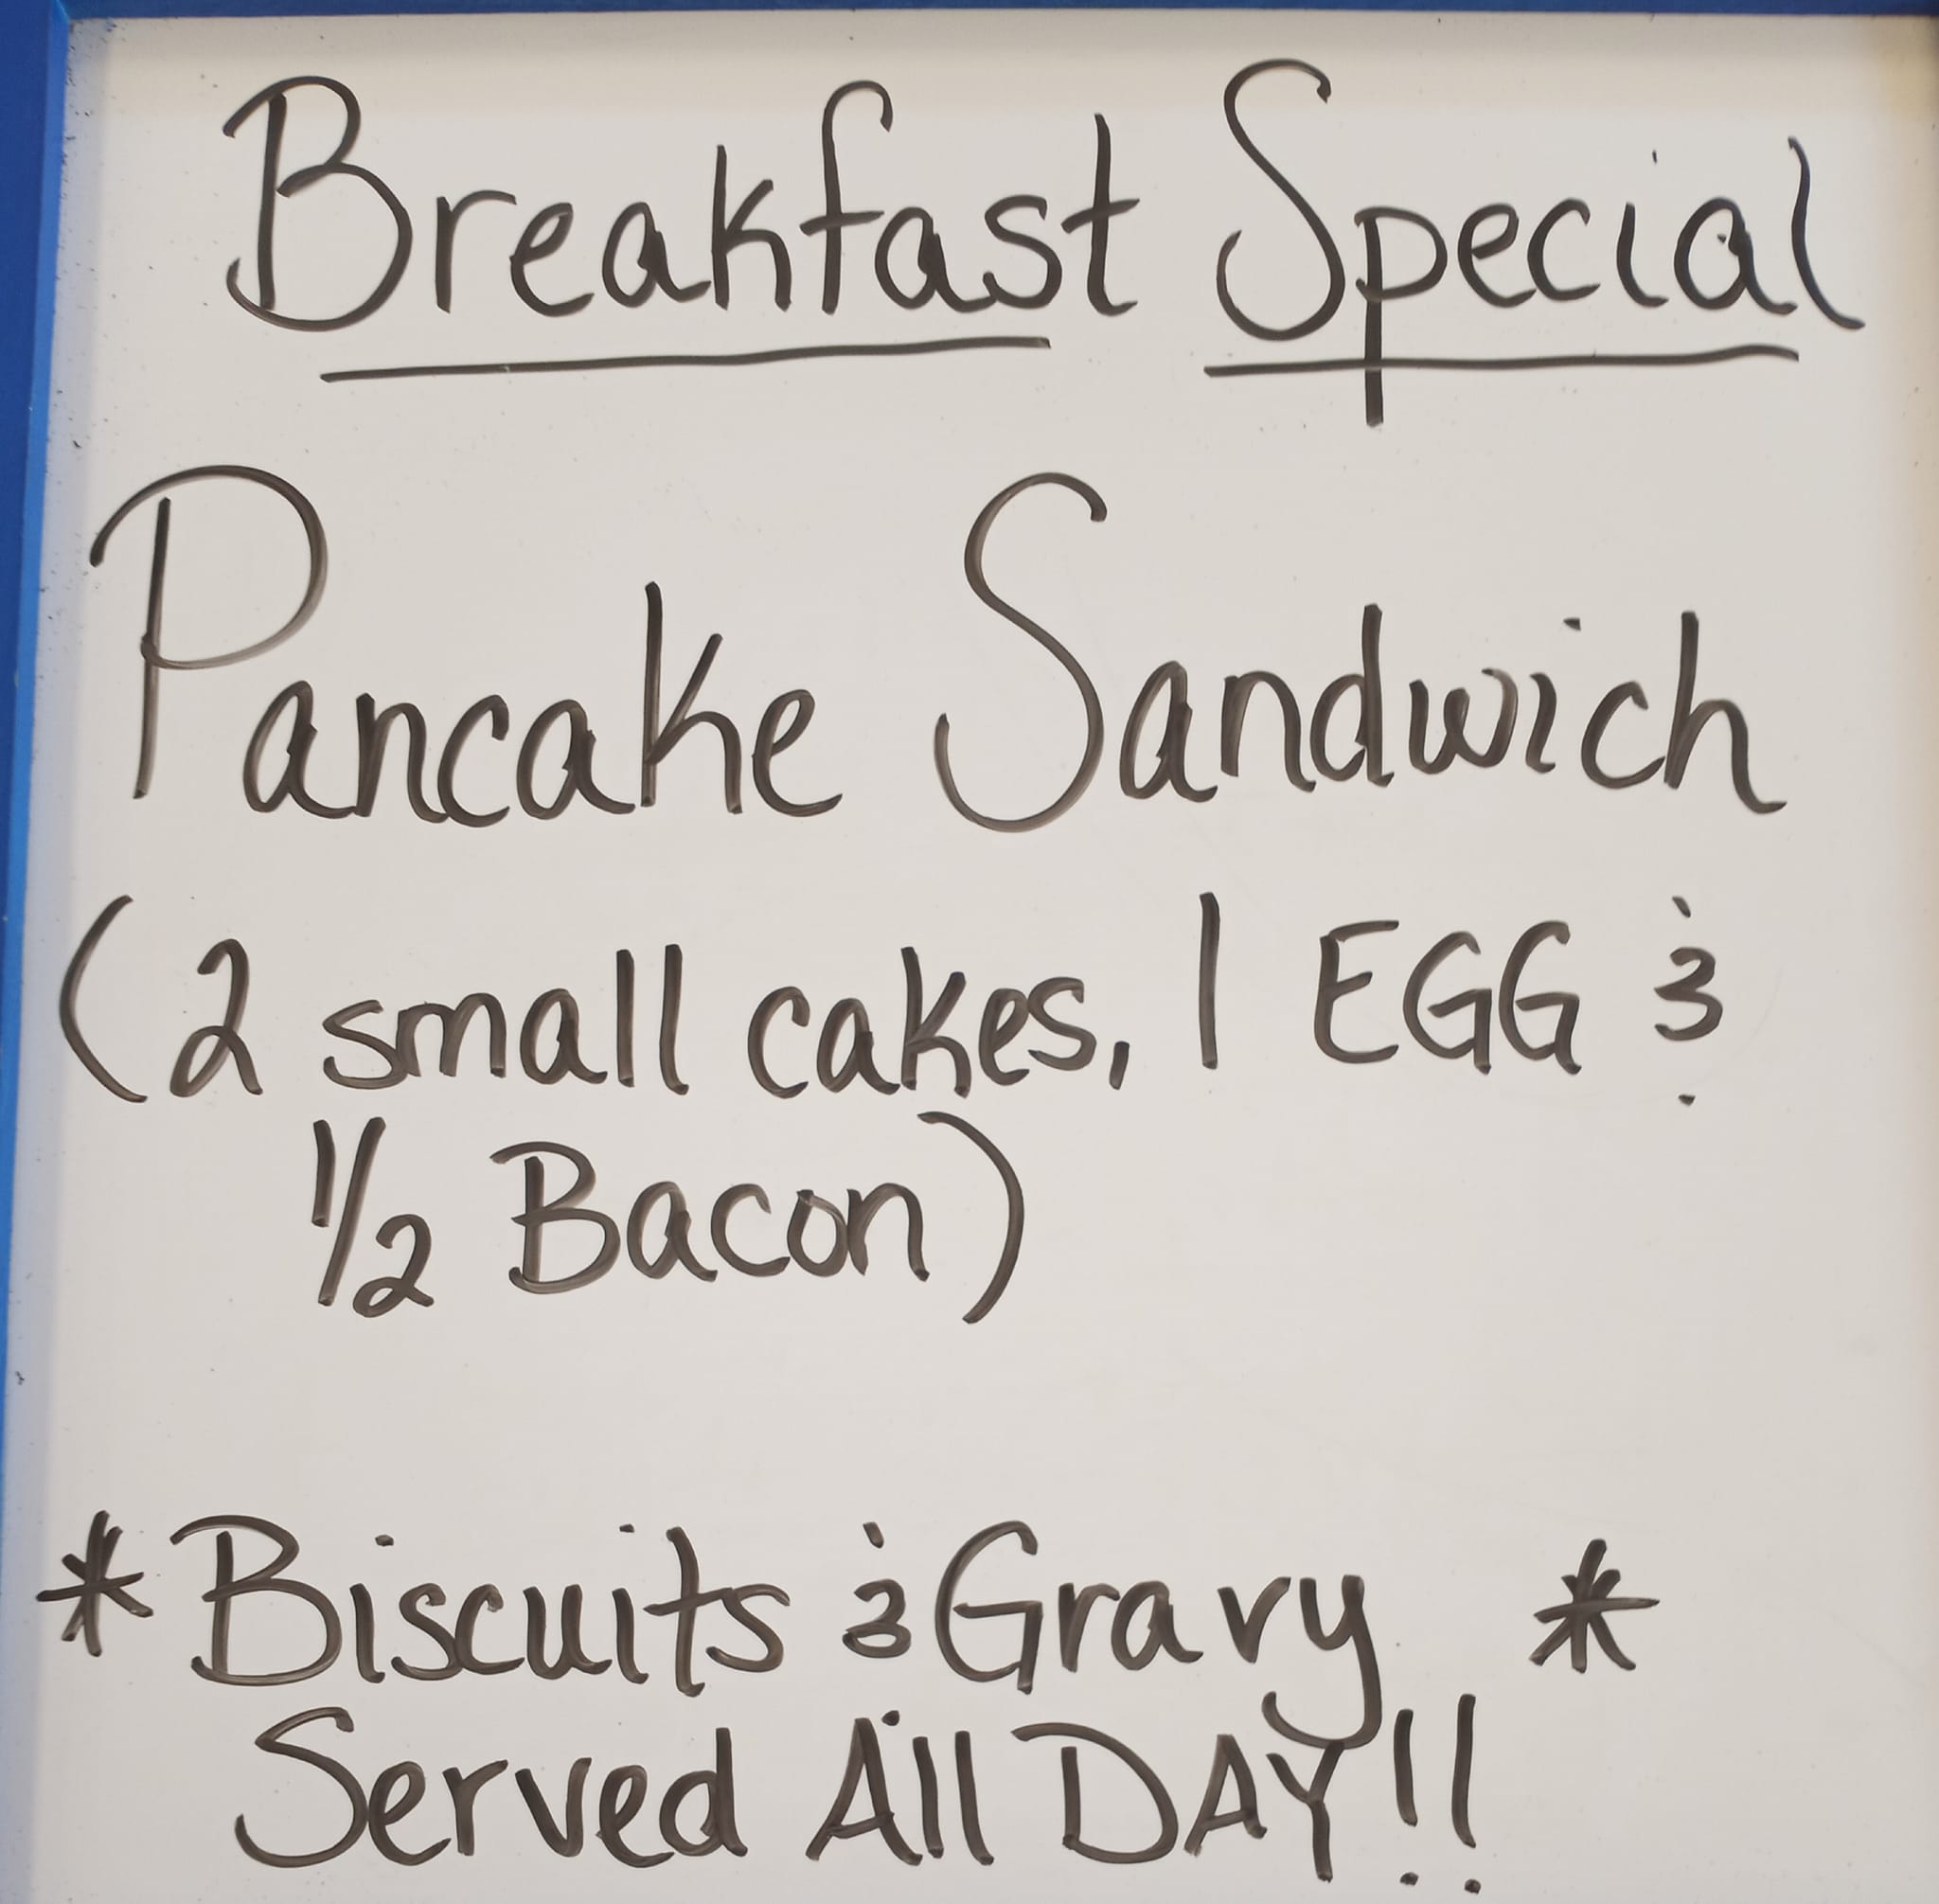 Breakfast Special
Pancake Sandwich
(2 small cakes, 1 EGG &
1/2 Bacon)
* Biscuits & Gravy *
Served All DAY!!